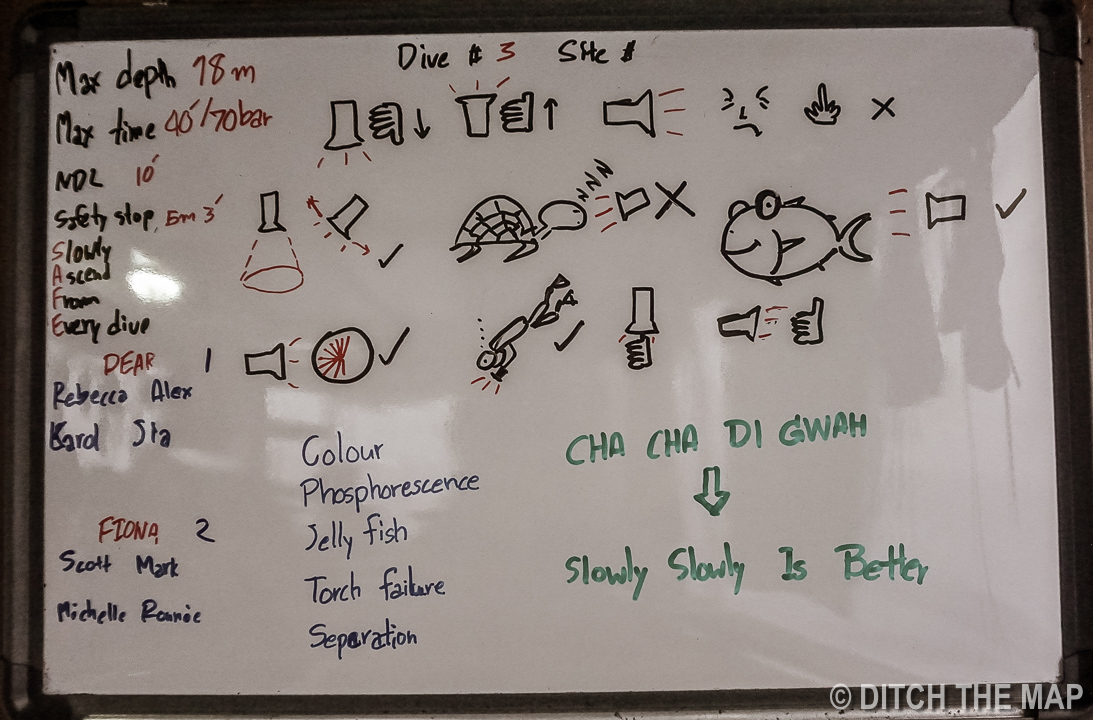 Dive # 3 Site #
Max depth 18m
Max time 40'/70bar
NDL 10'
Safety stop, 5m 3'
Slowly
Ascend
From
Every dive
DEAR 1
Rebecca Alex
Karol Sta
FIONA 2
Scott Mark
Michelle Ronnie
zzzz
Colour
Phosphorescence
Jelly fish
Torch failure
Separation
CHA CHA DI GWAH
Slowly Slowly Is Better
© DITCH THE MAP